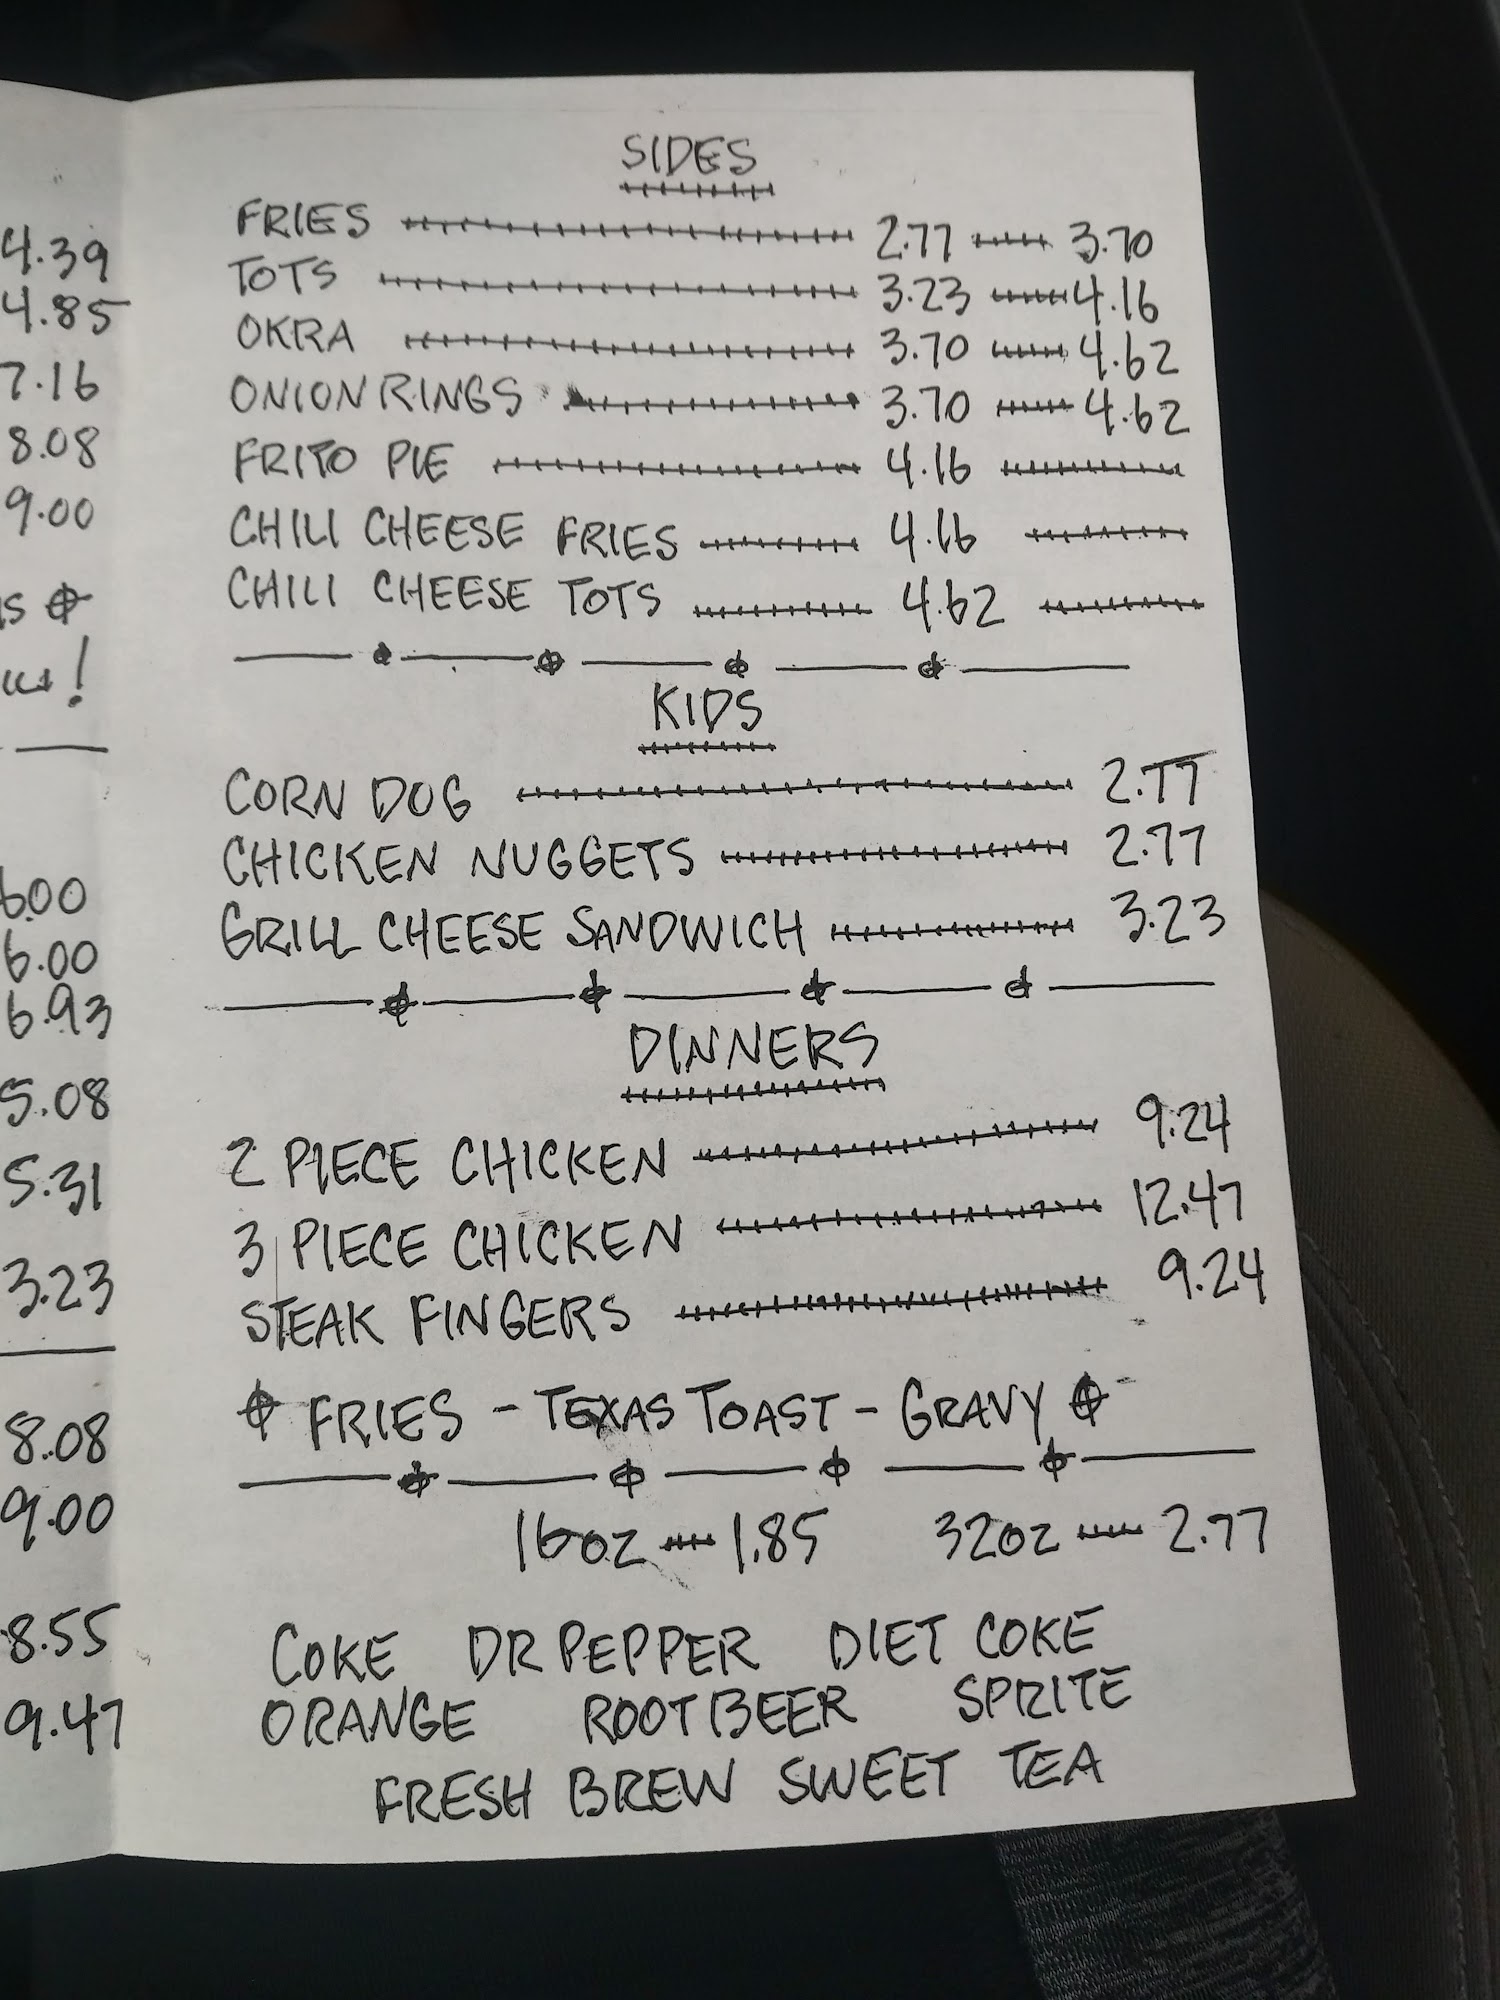 4.39
4.85
7.16
8.08
9.00
6.00
6.00
6.93
5.08
5.31
3.23
8.08
9.00
8.55
9.47
SIDES
FRIES 2.77 3.70
TOTS 3.23 4.16
OKRA 3.70 4.62
ONION RINGS 3.70 4.62
FRITO PIE 4.16
CHILI CHEESE FRIES 4.16
CHILI CHEESE TOTS 4.62
KIDS
CORN DOG 2.77
CHICKEN NUGGETS 2.77
GRILL CHEESE SANDWICH 3.23
DINNERS
2 PIECE CHICKEN 9.24
3 PIECE CHICKEN 12.47
STEAK FINGERS 9.24
FRIES - TEXAS TOAST - GRAVY
16oz 1.85 32oz 2.77
COKE DR PEPPER DIET COKE
ORANGE ROOT BEER SPRITE
FRESH BREW SWEET TEA